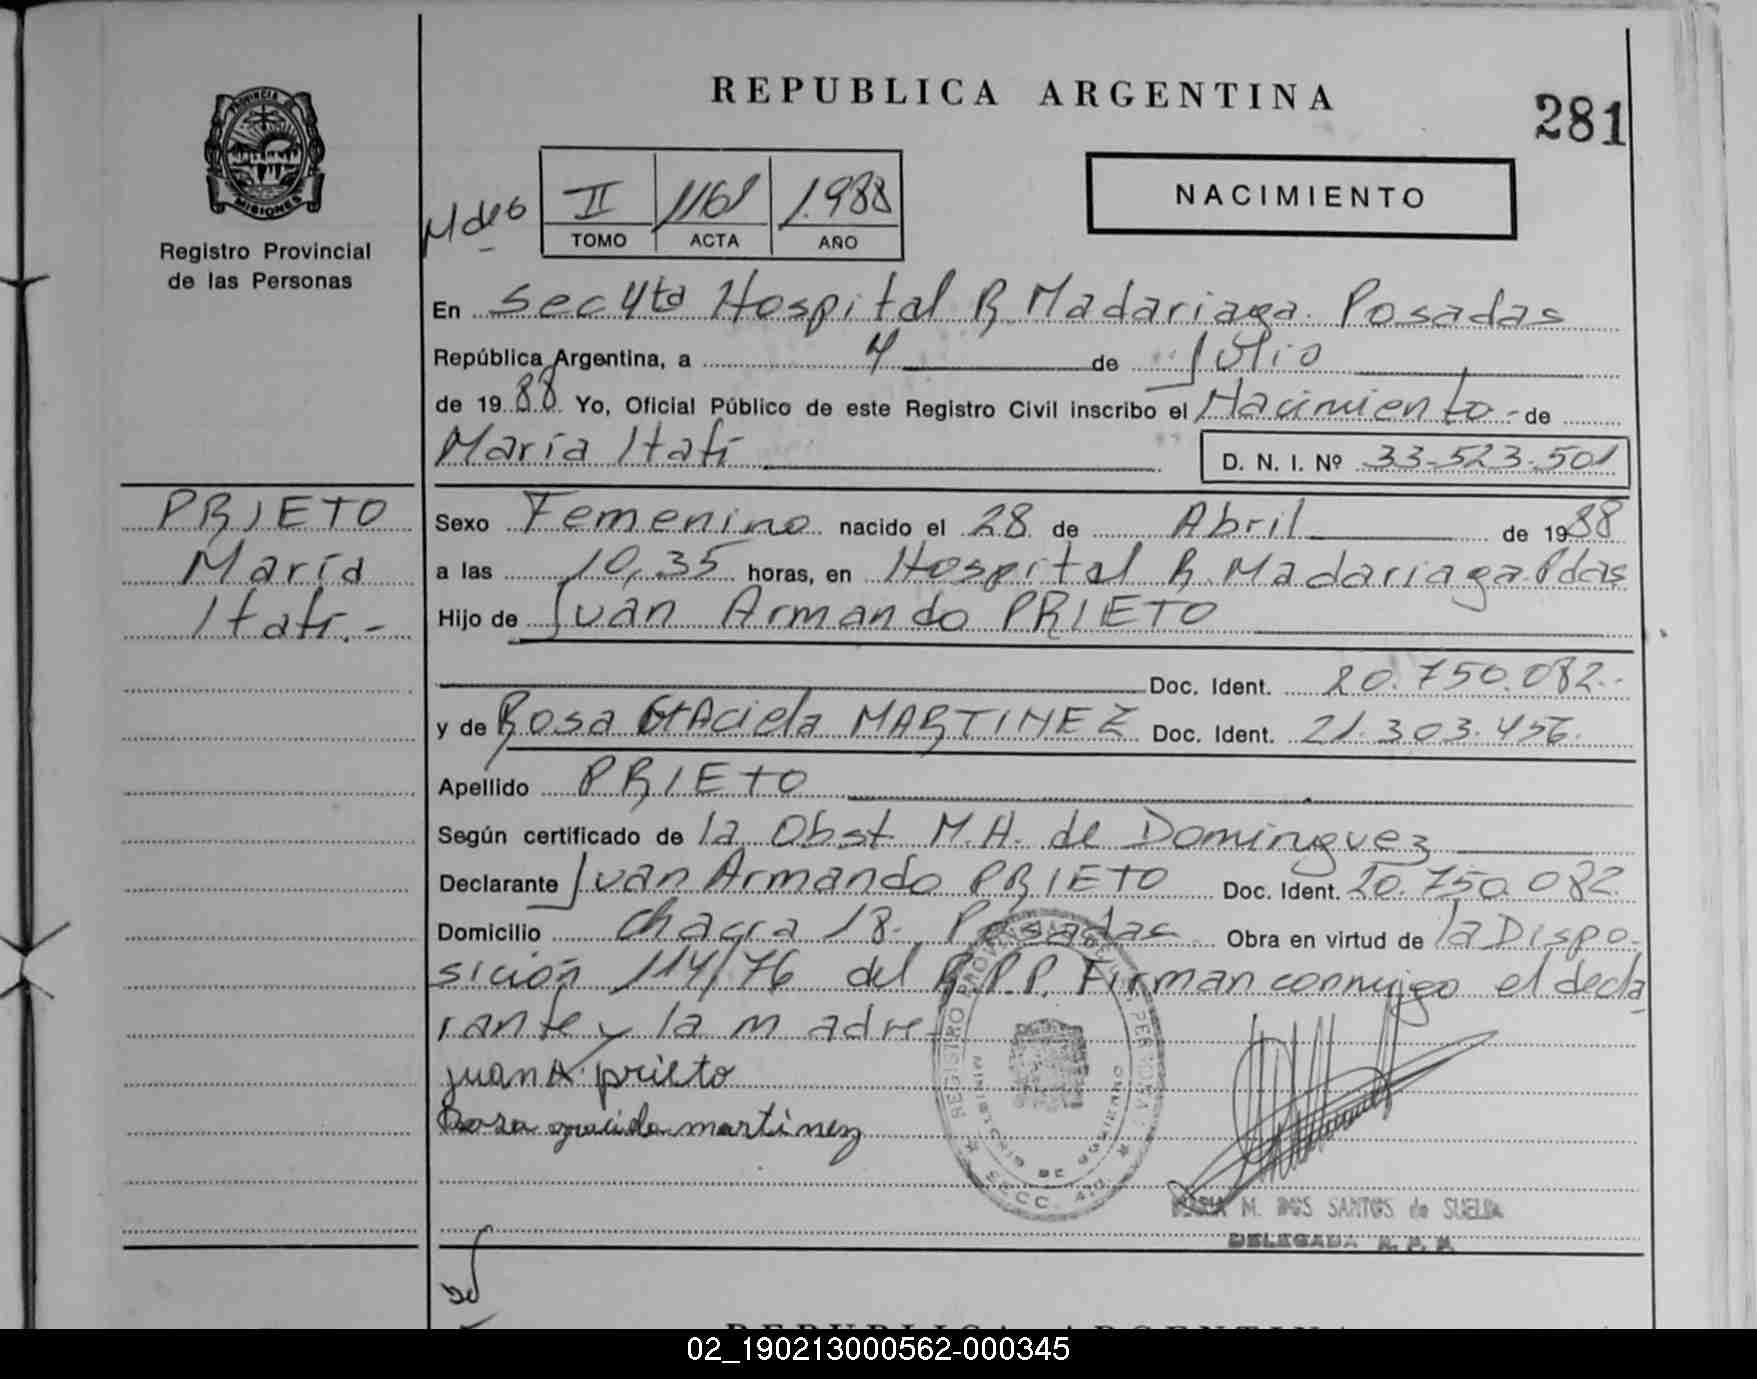 REPUBLICA ARGENTINA
281
PROVINCIA DE
MISIONES
Registro Provincial
de las Personas
II 1161 1.988
TOMO ACTA AÑO
NACIMIENTO
En Sec 4ta Hospital R. Madariaga. Posadas
República Argentina, a 4 de Julio
de 19 88 Yo, Oficial Público de este Registro Civil inscribo el Nacimiento - de
María Itatí D. N. I. Nº 33-523-501
PRIETO
María
Itatí.-
Sexo Femenino nacido el 28 de Abril de 19 88
a las 10,35 horas, en Hospital R. Madariaga. Pdas
Hijo de Juan Armando PRIETO
Doc. Ident. 20.750.082.-
y de Rosa GrAciela MARTINEZ Doc. Ident. 21.303.456.
Apellido PRIETO
Según certificado de la Obst. M.H. de Domínguez
Declarante Juan Armando PRIETO Doc. Ident. 20.750.082.
Domicilio Chacra 18. Posadas Obra en virtud de la Dispo-
sición 114/76 del R.P.P. Firman conmigo el decla
rante y la madre
juan A. prieto
Rosa graciela martinez
REGISTRO PROVINCIAL PERSONAS
MINISTERIO DE GOBIERNO
SECC. 4ta
MARIA M. DOS SANTOS de SUELDO
DELEGADA R. P. P.
REPUBLICA ARGENTINA
02_190213000562-000345